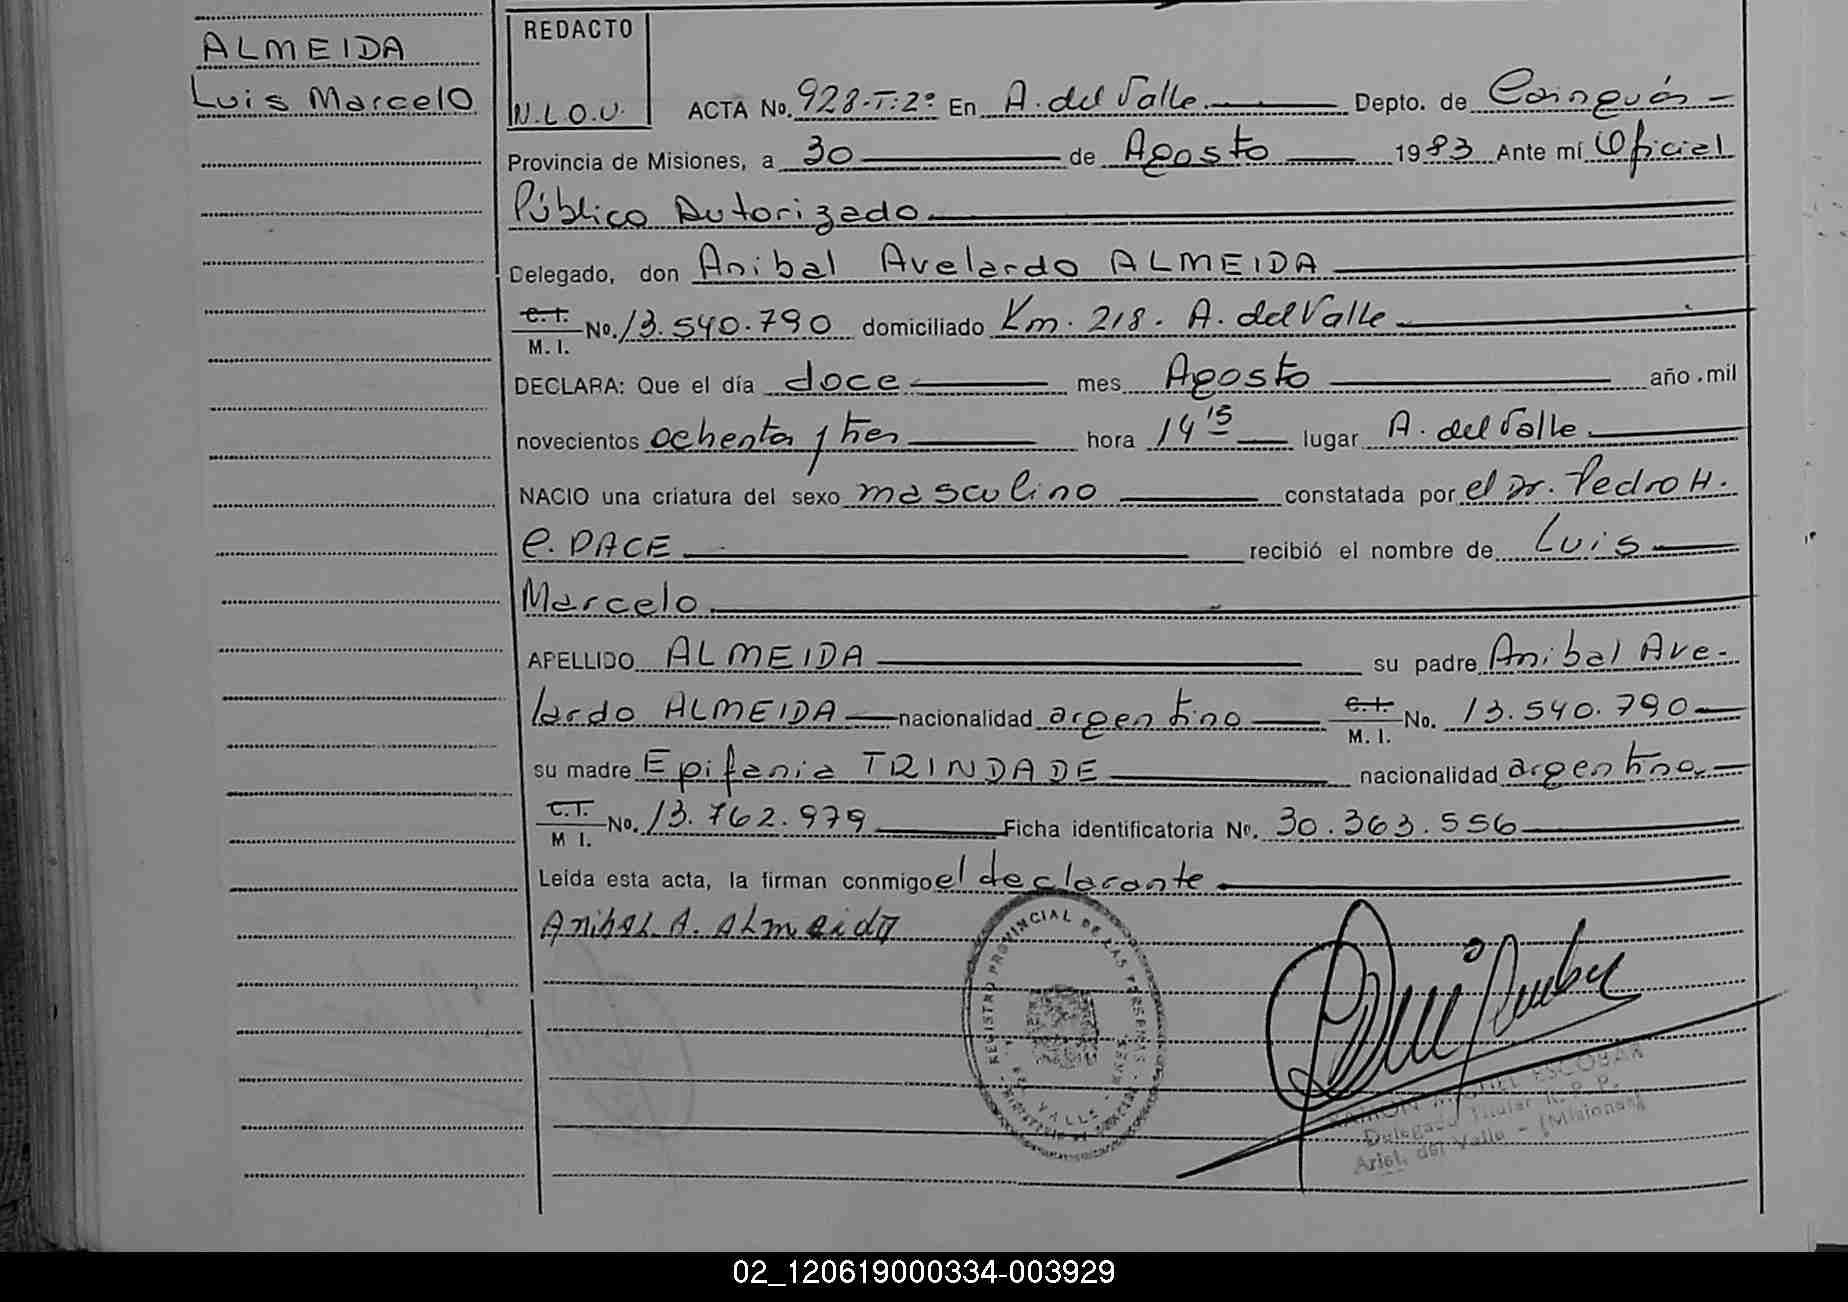 ALMEIDA
Luis Marcelo
REDACTO
N.L.O.U.
ACTA No. 928-T:2º En A. del Valle Depto. de Cainguás
Provincia de Misiones, a 30 de Agosto 1983 Ante mí Oficial
Público Autorizado
Delegado, don Anibal Avelardo ALMEIDA
C.I.
M.I. No. 13.540.790 domiciliado Km. 218. A. del Valle
DECLARA: Que el día doce mes Agosto año mil
novecientos ochenta y tres hora 14 15 lugar A. del Valle
NACIO una criatura del sexo masculino constatada por el Dr. Pedro H.
E. PACE recibió el nombre de Luis
Marcelo
APELLIDO ALMEIDA su padre Anibal Ave-
lardo ALMEIDA nacionalidad argentino C.I.
M.I. No. 13.540.790
su madre Epifania TRINDADE nacionalidad argentina
C.I.
M I. No. 13.762.979 Ficha identificatoria Nº. 30.363.556
Leida esta acta, la firman conmigo el declarante
Anibal A. Almeida
REGISTRO PROVINCIAL DE LAS PERSONAS
DEL VALLE
RAMON MIGUEL ESCOBAR
Delegado Titular R. P. P.
Arist. del Valle - (Misiones)
02_120619000334-003929